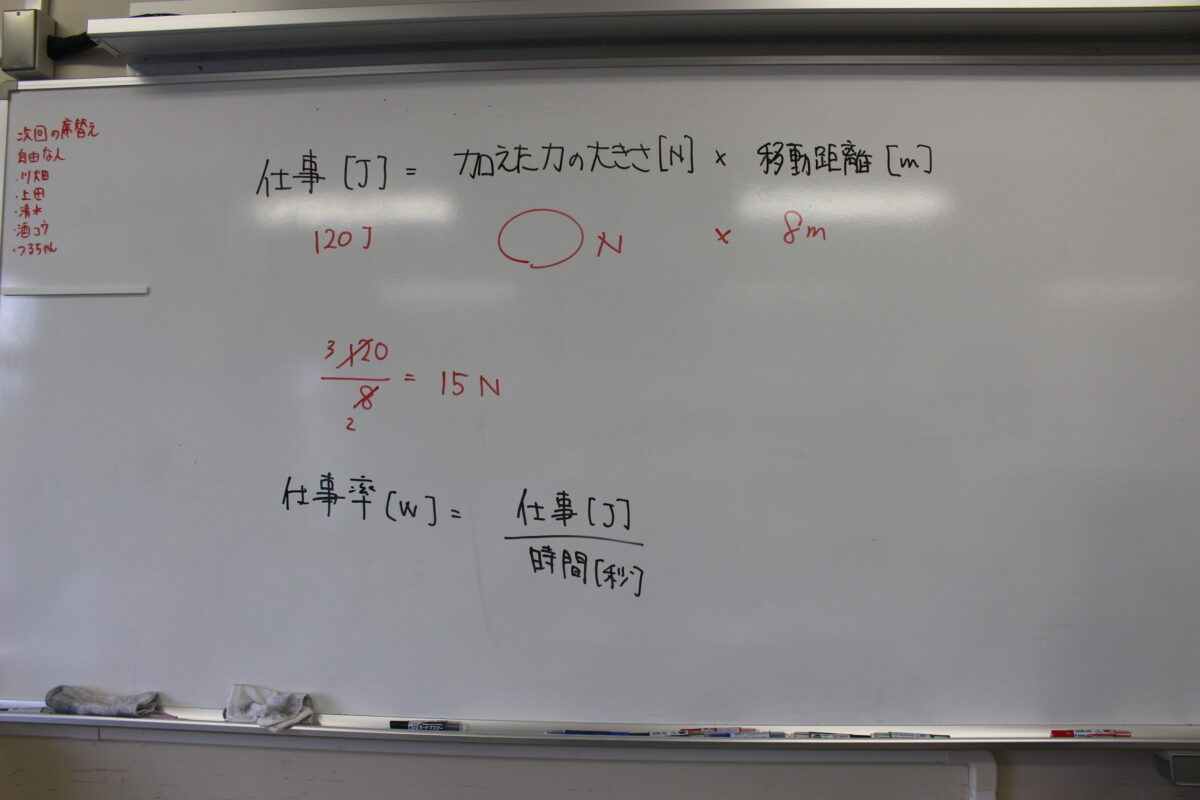 次回の席替え
自由な人
・川畑
・上田
・清水
・酒コウ
・つるちゃん
仕事 [J] = 加えた力の大きさ[N] × 移動距離 [m]
120J ◯ N × 8m
3 120
8 = 15 N
2
仕事率[W] = 仕事[J]
時間[秒]